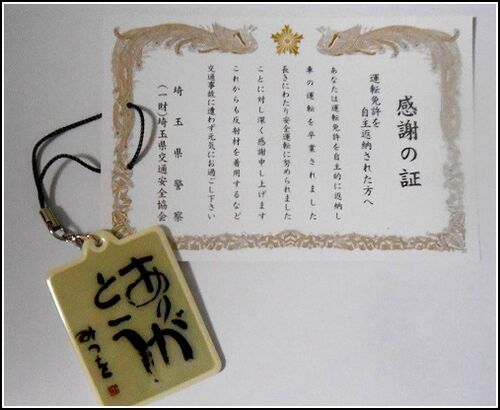 感謝の証
運転免許を
自主返納された方へ
あなたは運転免許を自主的に返納し
車の運転を卒業されました
長きにわたり安全運転に努められました
ことに対し深く感謝申し上げます
これからも反射材を着用するなど
交通事故に遭わず元気にお過ごし下さい
埼玉県警察
(一財)埼玉県交通安全協会
ありが
とう
みつを